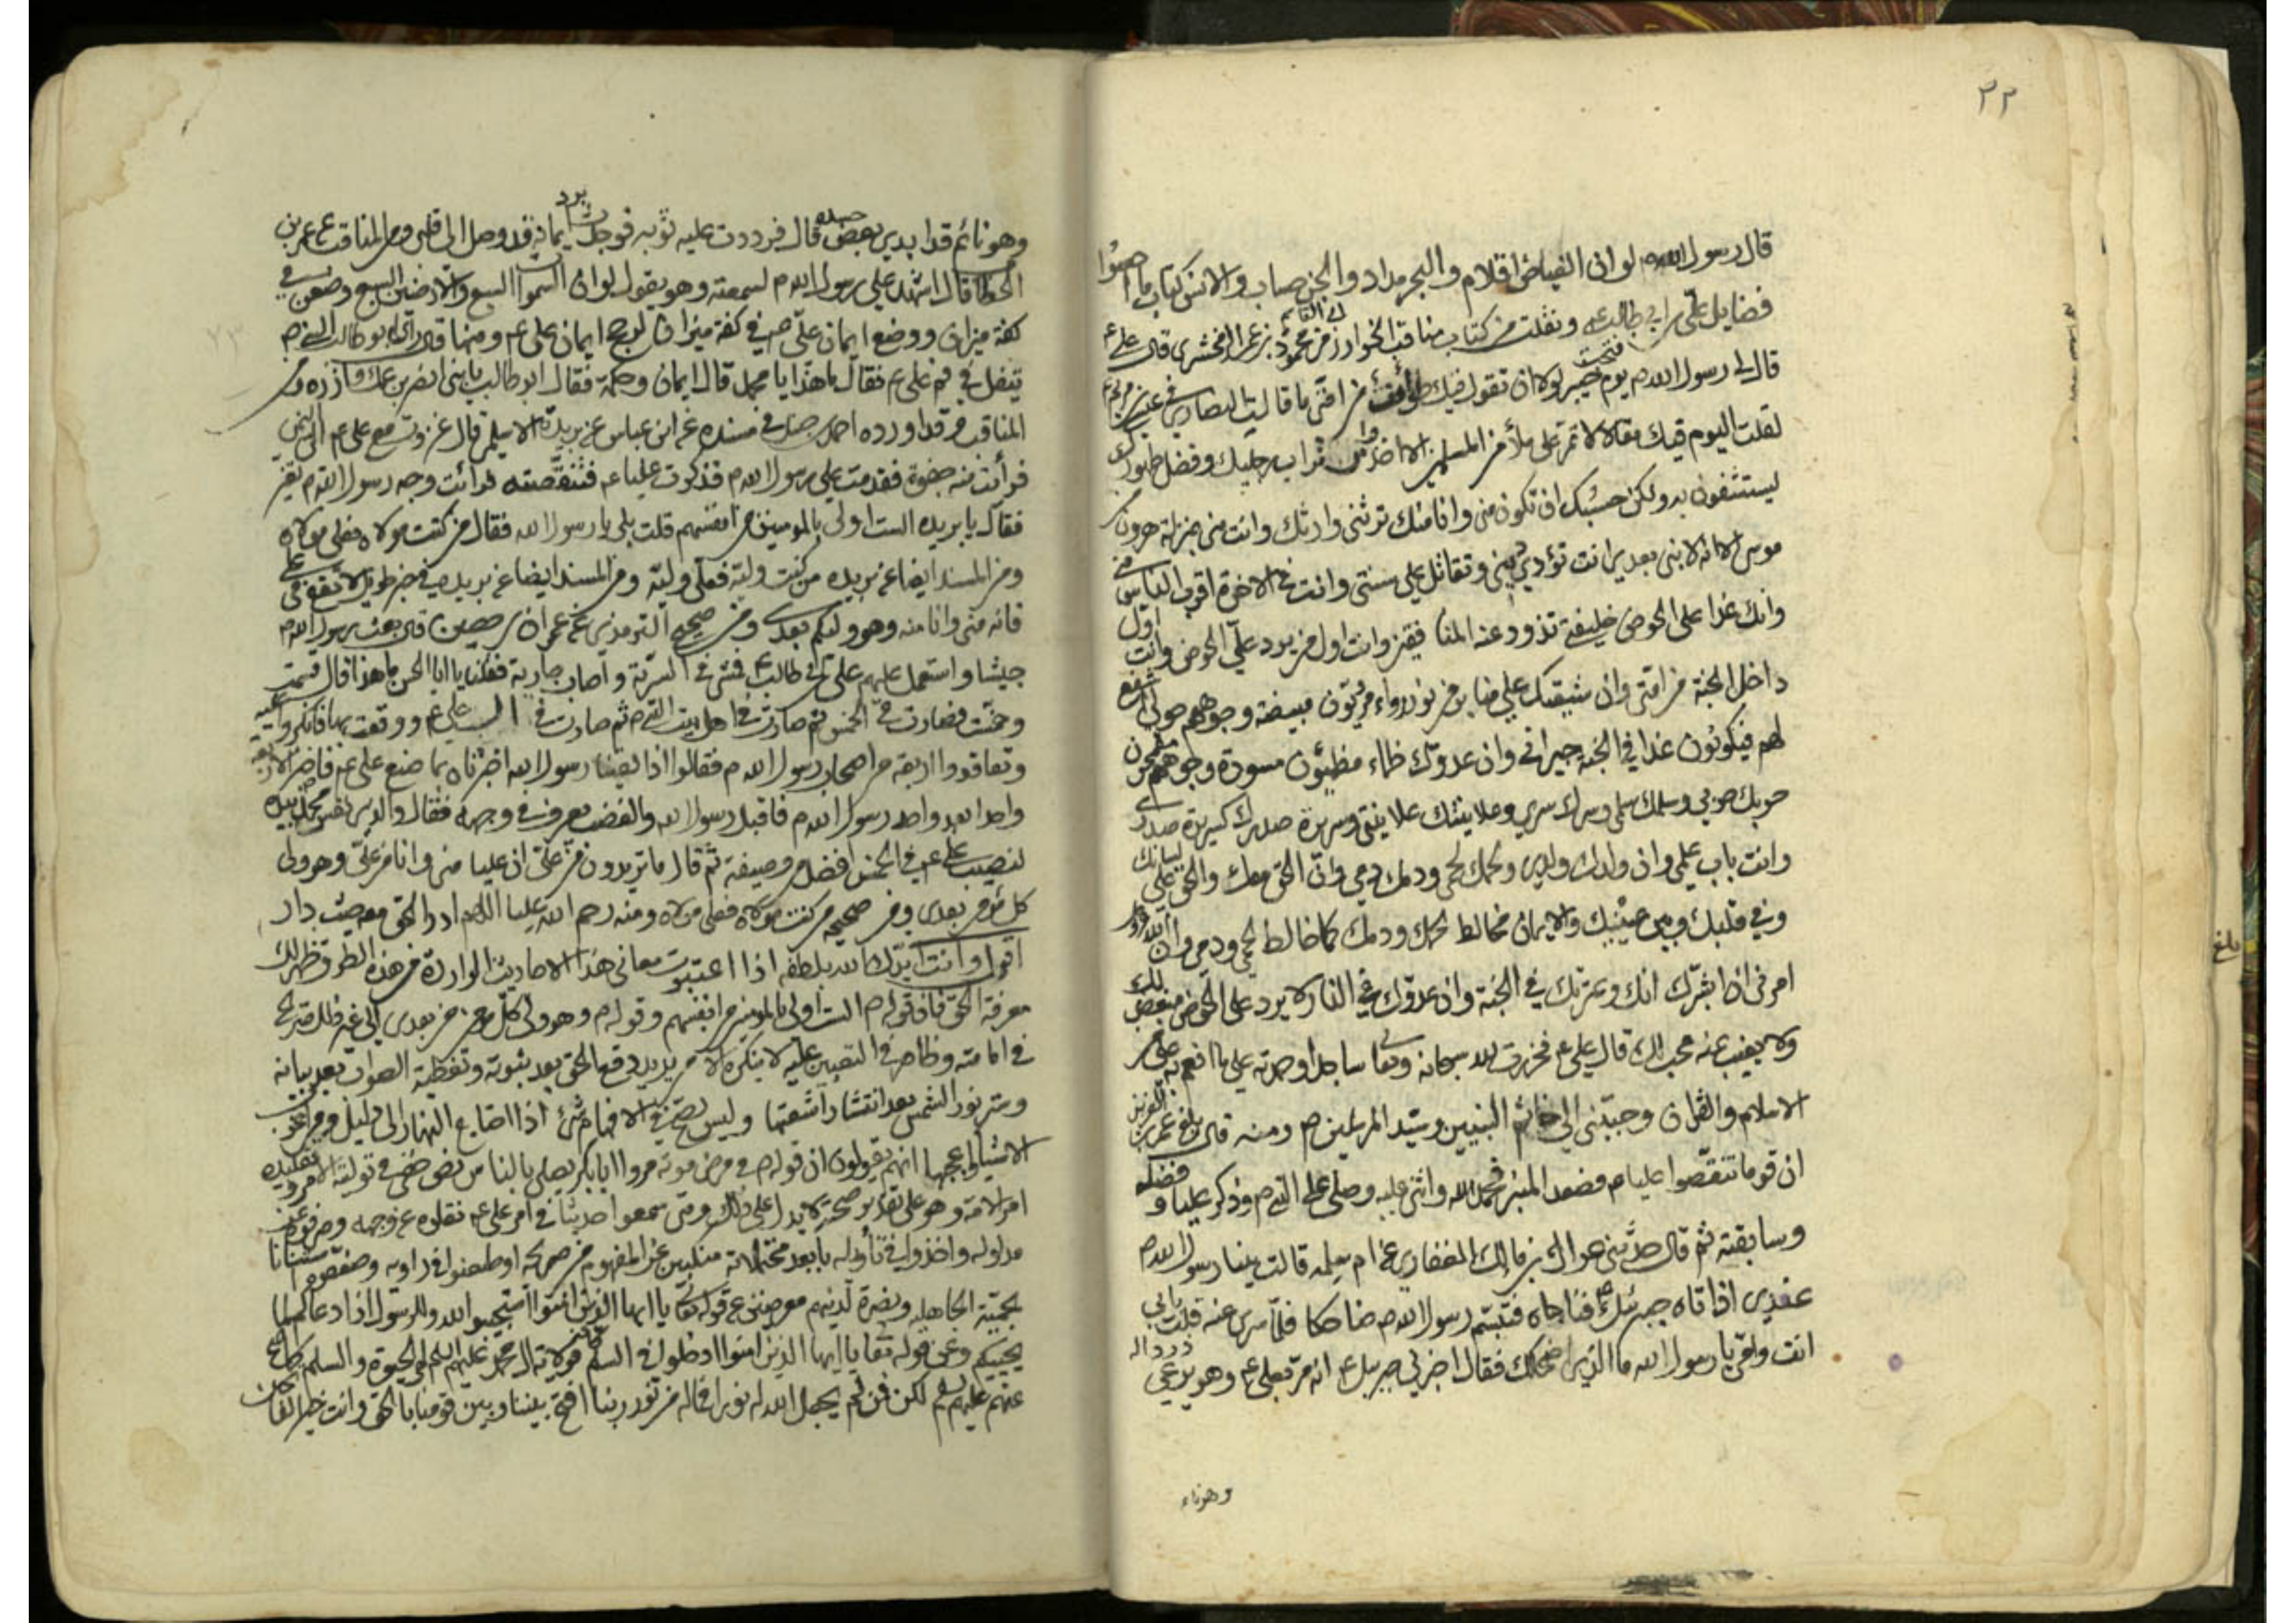 ٢٢
قال رسول الله ص لو ان الغياض اقلام والبحر مداد والجن حساب والانس كتاب ما احصوا
فضايل علي بن ابي طالب ع ونقلت من كتاب مناقب الخوارزمي محمود بن عمر الزمخشري قال علي ع
قال لي رسول الله ص يوم فتحت خيبر لولا ان تقول فيك طوائف من امتي ما قالت النصارى في عيسى بن مريم
لقلت اليوم فيك مقالا لا تمر على ملأ من المسلمين الا اخذوا من تراب رجليك وفضل طهورك
ليستشفون به ولكن حسبك ان تكون مني وانا منك ترثني وارثك وانت مني بمنزلة هرون من
موسى الا انه لا نبي بعدي انت تؤدي ديني وتقاتل على سنتي وانت في الاخرة اقرب الناس مني
وانك غدا على الحوض خليفتي تذود عنه المنافقين وانت اول من يرد علي الحوض وانت اول
داخل الجنة من امتي وان شيعتك على منابر من نور رواء مرويون مبيضة وجوههم حولي اشفع
لهم فيكونون غدا في الجنة جيراني وان عدوك ظماء مظمئون مسودة وجوههم مقمحون
حربك حربي وسلمك سلمي وسرك سري وعلانيتك علانيتي وسريرة صدرك كسريرة صدري
وانت باب علمي وان ولدك ولدي ولحمك لحمي ودمك دمي وان الحق معك والحق على لسانك
وفي قلبك وبين عينيك والايمان مخالط لحمك ودمك كما خالط لحمي ودمي وان الله عز وجل
امرني ان ابشرك انك وعترتك في الجنة وان عدوك في النار لا يرد على الحوض مبغض لك
ولا يغيب عنه محب لك قال علي ع فخررت لله سبحانه وتعالى ساجدا وحمدته على ما انعم به علي من
الاسلام والقران وحببني الى خاتم النبيين وسيد المرسلين ص ومنه قال بلغ عمر بن عبد العزيز
ان قوما تنقصوا عليا ع فصعد المنبر فحمد الله واثنى عليه وصلى على النبي ص وذكر عليا وفضله
وسابقته ثم قال حدثني عراك بن مالك الغفاري عن ام سلمه قالت بينا رسول الله ص
عندي اذا تاه جبرئيل فناجاه فتبسم رسول الله ص ضاحكا فلما سرى عنه قلت بابي
انت وامي يا رسول الله ما الذي اضحكك فقال اخبرني جبريل ع انه مر بعلي ع وهو يرعى ذودا له
وهو نائم
وهو نائم قد ابدي بعض جسده قال فرددت عليه ثوبه فوجدت برد ايمانه قد وصل الى قلبي ومن المناقب عن عمر بن
الخطاب قال اشهد على رسول الله ص لسمعته وهو يقول لو ان السموات السبع والارضين السبع وضعن في
كفة ميزان ووضع ايمان علي ص في كفة ميزان لرجح ايمان علي ع ومنها قال راى ابو طالب النبي ص
يتفل في فم علي ع فقال ما هذا يا محمد قال ايمان وحكمة فقال ابو طالب يا بني انصر ابن عمك وآزره ومن
المناقب وقد اورده احمد بن حنبل في مسنده عن ابن عباس عن بريدة الاسلمي قال غزوت مع علي ع الى اليمن
فرأيت منه جفوة فقدمت على رسول الله ص فذكرت عليا ع فتنقصته فرأيت وجه رسول الله ص يتغير
فقال يا بريده الست اولى بالمومنين من انفسهم قلت بلى يا رسول الله فقال من كنت مولاه فعلي مولاه
ومن المسند ايضا عن بريده من كنت وليه فعلي وليه ومن المسند ايضا عن بريده في خبر طويل لا تقع في علي
فانه مني وانا منه وهو وليكم بعدي ومن صحيح الترمذي عن عمران بن حصين قال بعث رسول الله ص
جيشا واستعمل عليهم علي بن ابي طالب ع فمشى في السرية واصاب جارية فقلنا يا ابا الحسن ما هذا قال قسمت
وخمست فصارت في الخمس ثم صارت في اهل بيت النبي ص ثم صارت في آل علي ع ووقعت بها فانكروا عليه
وتعاقدوا اربعة من اصحاب رسول الله ص فقالوا اذا لقينا رسول الله اخبرناه بما صنع علي ع
واحدا بعد واحد رسول الله ص فاقبل رسول الله والغضب يعرف في وجهه فقال والذي نفس محمد بيده
لنصيب علي ع في الخمس افضل من وصيفة ثم قال ما تريدون من علي ان عليا مني وانا من علي وهو ولي
كل مؤمن بعدي ومن صحيحه من كنت مولاه فعلي مولاه ومنه رحم الله عليا اللهم ادر الحق معه حيث دار
اقول وانت ايدك الله بلطفه اذا اعتبرت معاني هذه الاحاديث الواردة من هذه الطرق ظهر لك
معرفة الحق فان قوله ص الست اولى بالمومنين من انفسهم وقوله ص وهو ولي كل مومن من بعدي الى غير ذلك صريح
في امامته وظاهر في التعيين عليه لا ينكره الا من يريد دفع الحق بعد ثبوته وتغطية الصواب بعد بيانه
وستر نور الشمس بعد انتشار اشعتها وليس يصح في الافهام شئ اذا احتاج النهار الى دليل ومن اغرب
الاشياء واعجبها انهم يقولون ان قوله ص في مرض موته مروا ابا بكر يصلي بالناس نص خفي في توليته الامر وتقليده
امر الامة وهو على تقدير صحته لا يدل على ذلك ومتى سمعوا حديثا في امر علي ع نقلوه عن وجهه وصرفوه عن
مدلوله واخذوا في تأويله بابعد محتملاته منكبين عن المفهوم من صريحه او طعنوا في راويه وضعفوه
بحمية الجاهليه ونصرة لدينهم معرضين عن قوله تعالى يا ايها الذين امنوا استجيبوا لله وللرسول اذا دعاكم لما
يحييكم وعن قوله تعالى يا ايها الذين امنوا ادخلوا في السلم كافة
عنهم عليهم السلم لكن من لم يجعل الله له نورا فماله من نور ربنا افتح بيننا وبين قومنا بالحق وانت خير الفاتحين
بلغ